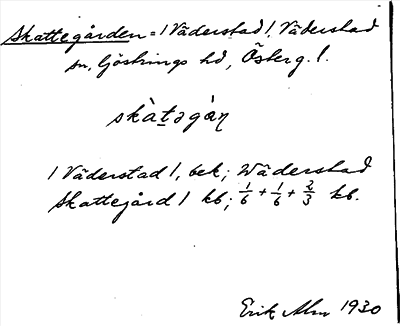 Skattegården = / Väderstad /, Väderstad
sn, Göstrings hd, Österg. l.
skàt̠əgàn̩
/ Väderstad /, bek; Wäderstad
Skattegård / kb; 1/6 + 1/6 + 2/3 kb.
Erik Alm 1930